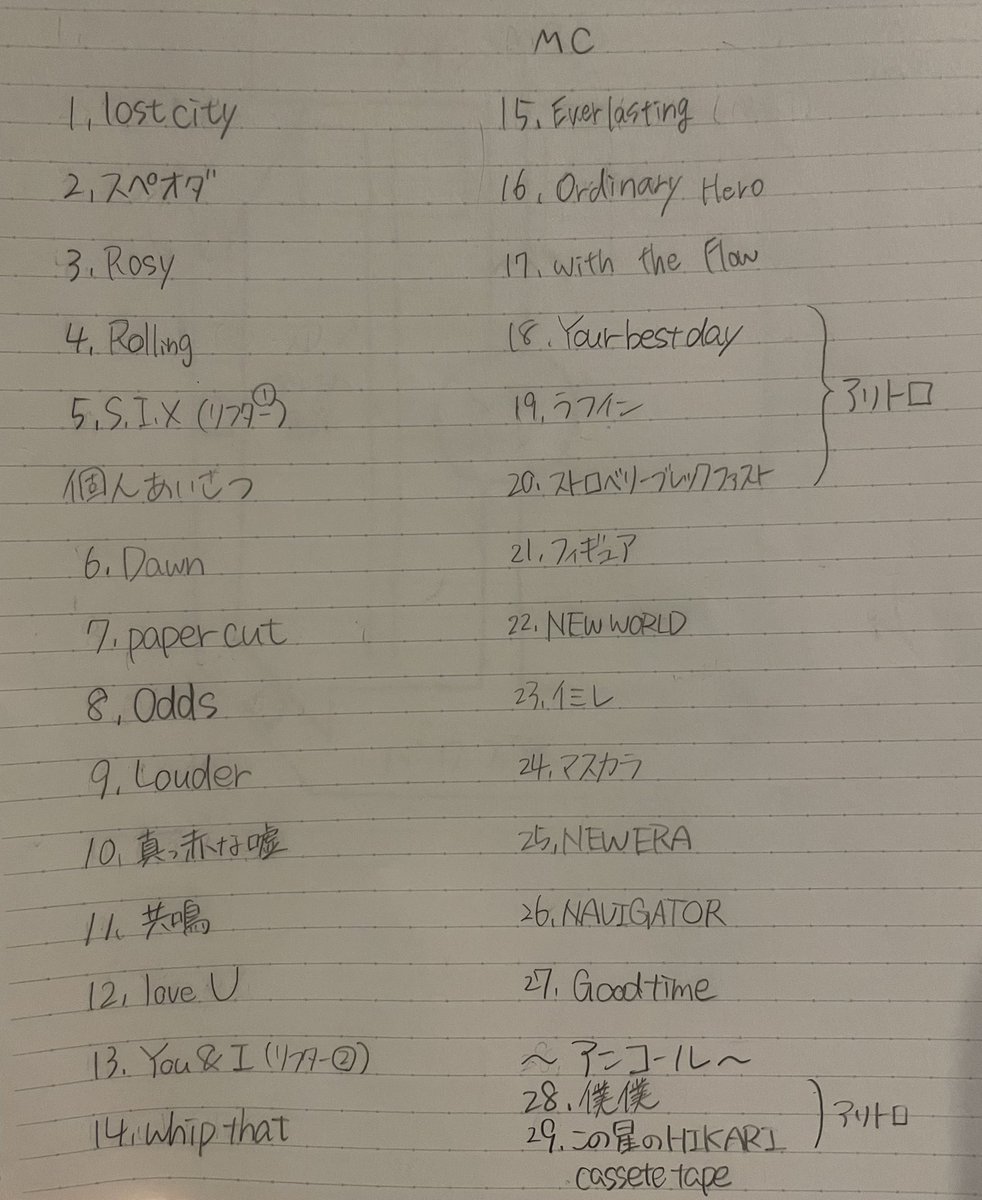 1. lost city
2. スペオダ
3. Rosy
4. Rolling
5. S.I.X (リフター①)
個人あいさつ
6. Dawn
7. paper cut
8. Odds
9. Louder
10. 真っ赤な嘘
11. 共鳴
12. love U
13. You & I (リフター②)
14. whip that
MC
15. Everlasting
16. Ordinary Hero
17. with the Flow
18. Your best day
19. ラフイン
20. ストロベリーブレックファスト
アリトロ
21. フィギュア
22. NEW WORLD
23. イミレ
24. マスカラ
25. NEW ERA
26. NAVIGATOR
27. Good time
〜アンコール〜
28. 僕僕
29. この星のHIKARI
アリトロ
cassete tape